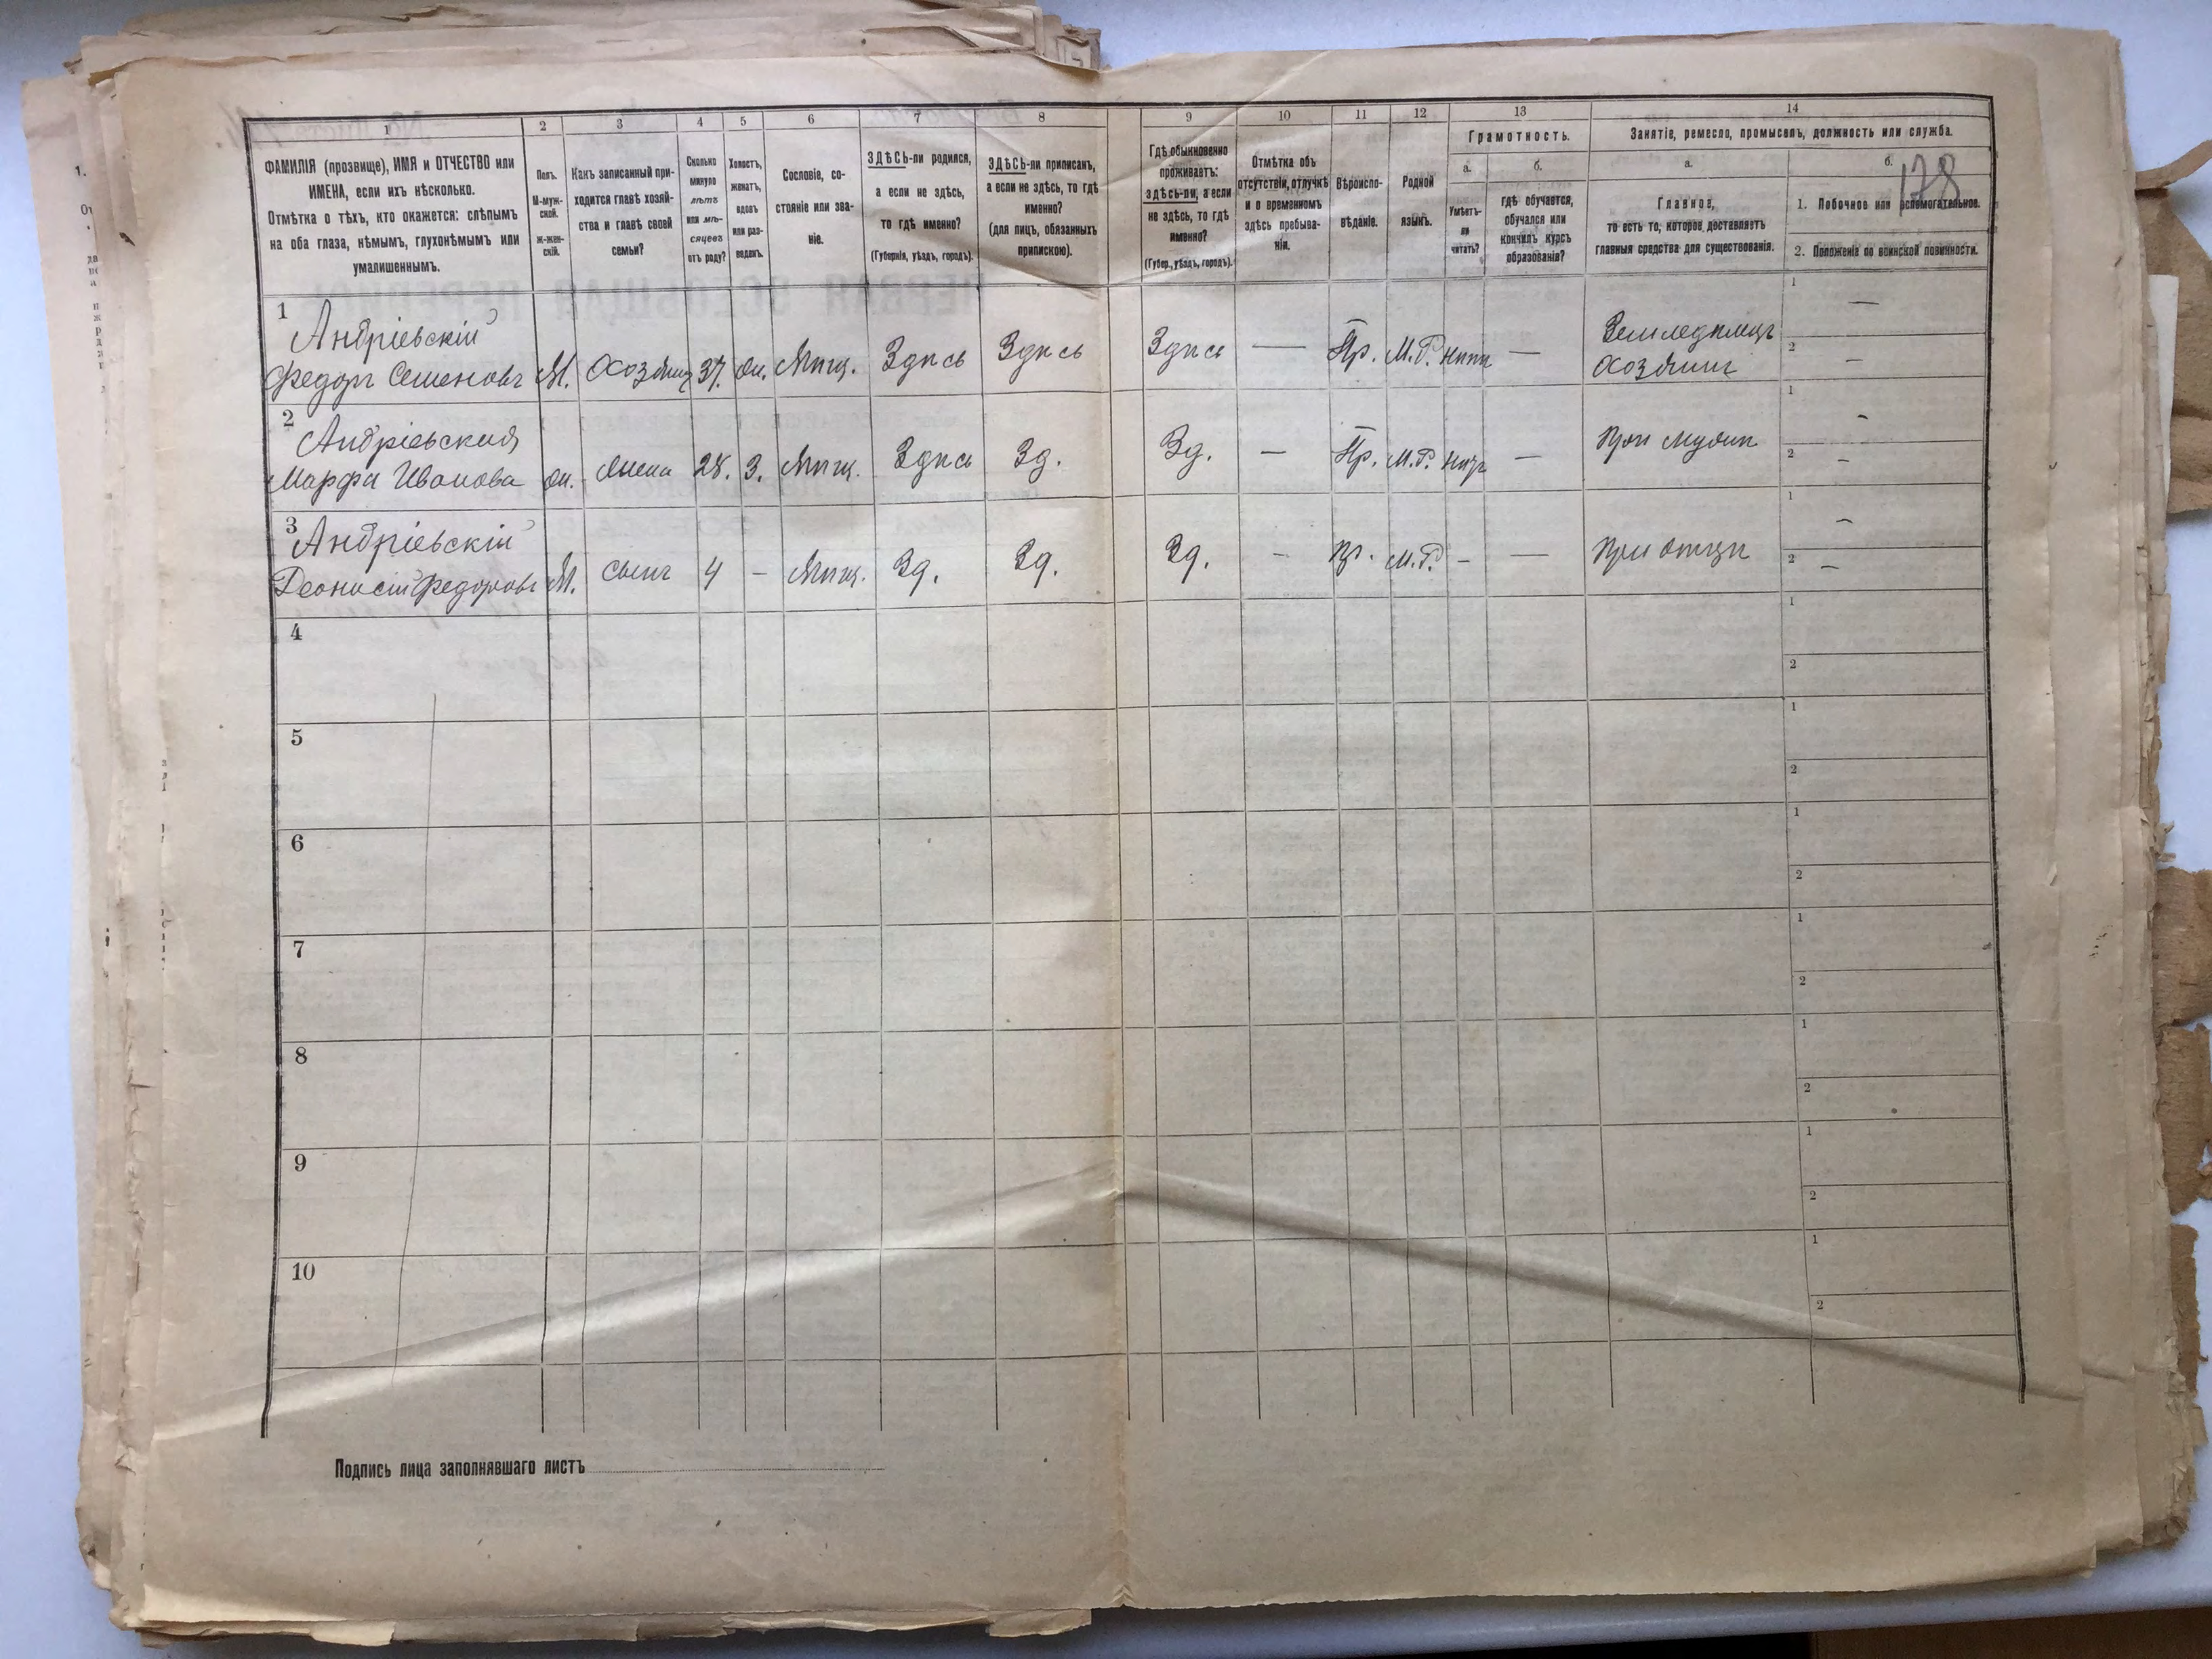 1
2
3
4
5
6
7
8
9
10
11
12
13
14
ФАМИЛІЯ (прозвище), ИМЯ и ОТЧЕСТВО или
ИМЕНА, если ихъ нѣсколько.
Отмѣтка о тѣхъ, кто окажется: слѣпымъ
на оба глаза, нѣмымъ, глухонѣмымъ или
умалишеннымъ.
Полъ.
М-муж-
ской.
Ж-жен-
скій.
Какъ записанный при-
ходится главѣ хозяй-
ства и главѣ своей
семьи?
Сколько
минуло
лѣтъ
или мѣ-
сяцевъ
отъ роду?
Холостъ,
женатъ,
вдовъ
или раз-
веденъ.
Сословіе, со-
стояніе или зва-
ніе.
ЗДѢСЬ-ли родился,
а если не здѣсь,
то гдѣ именно?
(Губернія, уѣздъ, городъ).
ЗДѢСЬ-ли приписанъ,
а если не здѣсь, то гдѣ
именно?
(для лицъ, обязанныхъ
припискою).
Гдѣ обыкновенно
проживаетъ:
здѣсь-ли, а если
не здѣсь, то гдѣ
именно?
(Губер., уѣздъ, городъ).
Отмѣтка объ
отсутствіи, отлучкѣ
и о временномъ
здѣсь пребыва-
ніи.
Вѣроиспо-
вѣданіе.
Родной
языкъ.
Грамотность.
а.
Умѣетъ-
ли
читать?
б.
гдѣ обучается,
обучался или
кончилъ курсъ
образованія?
Занятіе, ремесло, промыселъ, должность или служба.
а.
Главное,
то есть то, которое доставляетъ
главныя средства для существованія.
б.
178
1. Побочное или вспомогательное.
2. Положеніе по воинской повинности.
1
Андріевскій
Федоръ Семеновъ
М.
Хозяинъ
37.
Мѣщ.
Здѣсь
Здѣсь
Здѣсь
—
Пр.
М.Р.
—
Земледѣлецъ
Хозяинъ
1
—
2
—
2
Андріевская
Марфа Иванова
Жена
28.
З.
Мѣщ.
Здѣсь
Зд.
Зд.
—
Пр.
М.Р.
—
При мужѣ
1
-
2
-
3
Андріевскій
Деонисій Федоровъ
М.
Сынъ
4
-
Мѣщ.
Зд.
Зд.
Зд.
-
Пр.
М.Р.
-
—
При отцѣ
1
-
2
-
4
1
2
5
1
2
6
1
2
7
1
2
8
1
2
9
1
2
10
1
2
Подпись лица заполнявшаго листъ